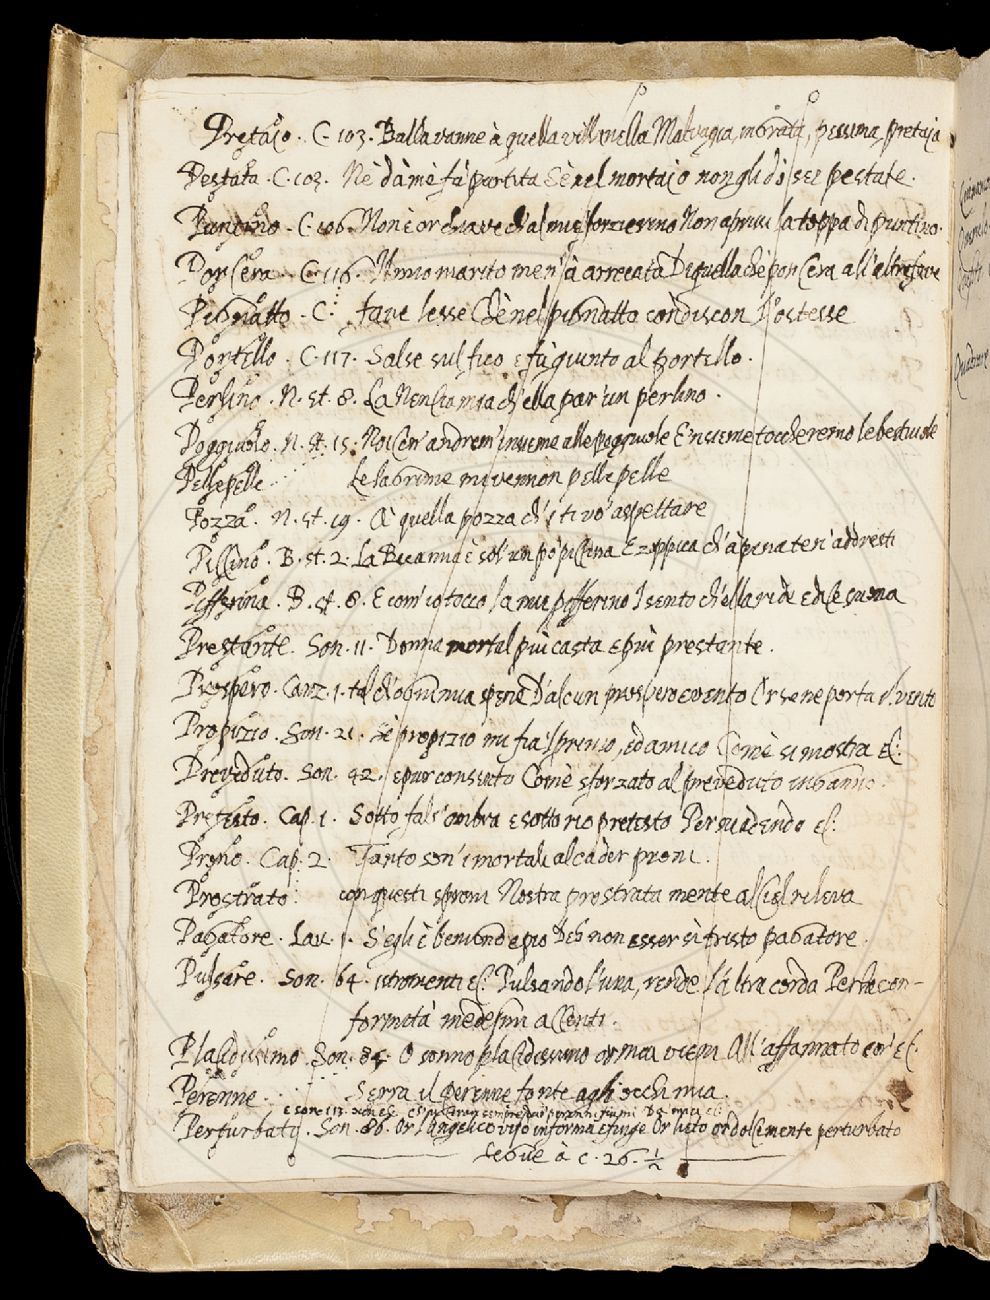 Pretaio. C. 103. Balla vanne à quella villanella Malvagia, morata, pessima, pretaja
Pestata. C. 103. Nè dà mè fà partita Sè nel mortajo non gli dò sei pestate.
Puntino. C. 106. Non è or chiave ch'al mie forzierino Non apriss la toppa di puntino.
Por Cera. C. 116. Il mio marito men hà arrecata Di quella chè por Cera all'altre fave
Pignatto. C. : fave lesse Chè nel pignatto condiscon l'ostesse
Portello. C. 117. Salse sul fico e fù giunto al portello.
Perlino. N. st. 8. La Nenciamia ch'ella par' un perlino.
Poggiuolo. N. st. 15. Noi Cen' andrem' insieme alle poggiuole E'nsieme toccheremo le bestiuole
Pelle pelle . . . Le lagrime mi vennon pelle pelle
Pozza. N. st. 19. A quella pozza ch'i ti vo' aspettare
Piccino. B. st. 2. La Beca mia è sol' un pò piccina E zoppica ch'apena te n' addresti
Pifferina. B. st. 8. E com' io tocco la mie pifferino I sento ch'ella ride ed
Prestante. Son. 11. Donna mortal più casta e più prestante.
Prospero. Canz. 1. tal ch'ogni mia spene D'alcun prospero evento Or se ne porta il vento
Propizio. Son. 21. Sè propizio mi fia'l primo, ed amico Com'è si mostra &c.
Preveduto. Son. 42. e pur consento Com'è sforzato al preveduto inganno.
Pretesto. Cap. 1. Sotto fals' ombra e sotto rio pretesto Persuadendo &c.
Prono. Cap. 2. Tanto son' i mortali al cader proni.
Prostrato : con questi sproni Nostra prostrata mente al Ciel rileva
Pagatore. Lau. 1. S'egli è benigno e pio Deh non esser sì tristo pagatore.
Pulsare. Son. 64. istromenti &c. Pulsando l'una, rende l'altra corda Per la con-
formità medesmi accenti.
Placidissimo. Son. 84. O sonno placidissimo ormai vieni All'affannato cor' &c.
Perenne. : Serra il perenne fonte agli occhi mia.
e son. 113. occhi &c. perenni fiumi De' miei &c.
Perturbato. Son. 86. Or l'angelico viso informa e finge Or lieto or dolcemente perturbato
segue à c. 26. ½